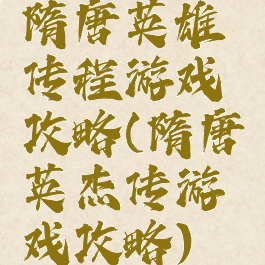 隋唐英雄
传程游戏
攻略(隋唐
英杰传游
戏攻略)